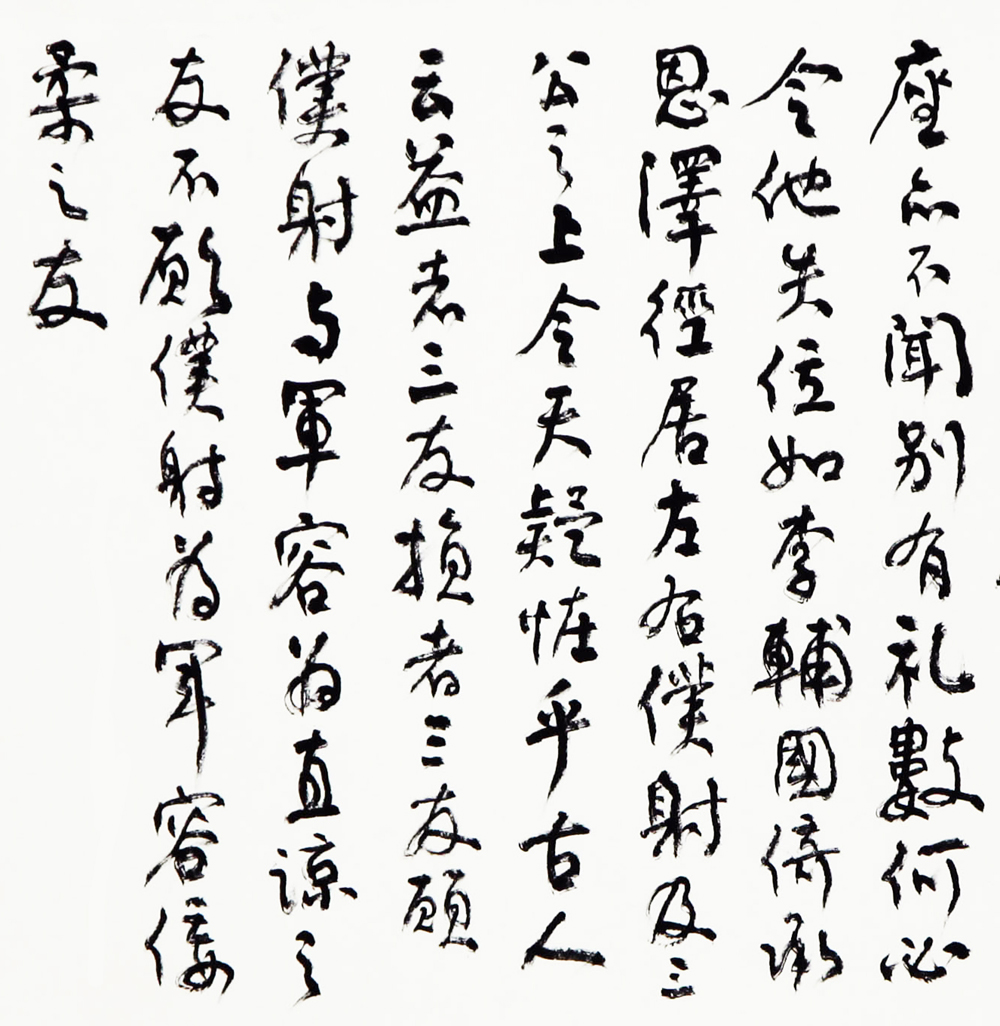 座亦不闻别有礼數何必
令他失位如李輔國倚承
恩澤徑居左右僕射及三
公之上令天疑恠乎古人
云益者三友損者三友願
僕射与軍容為直諒之
友不願僕射為軍容佞
柔之友